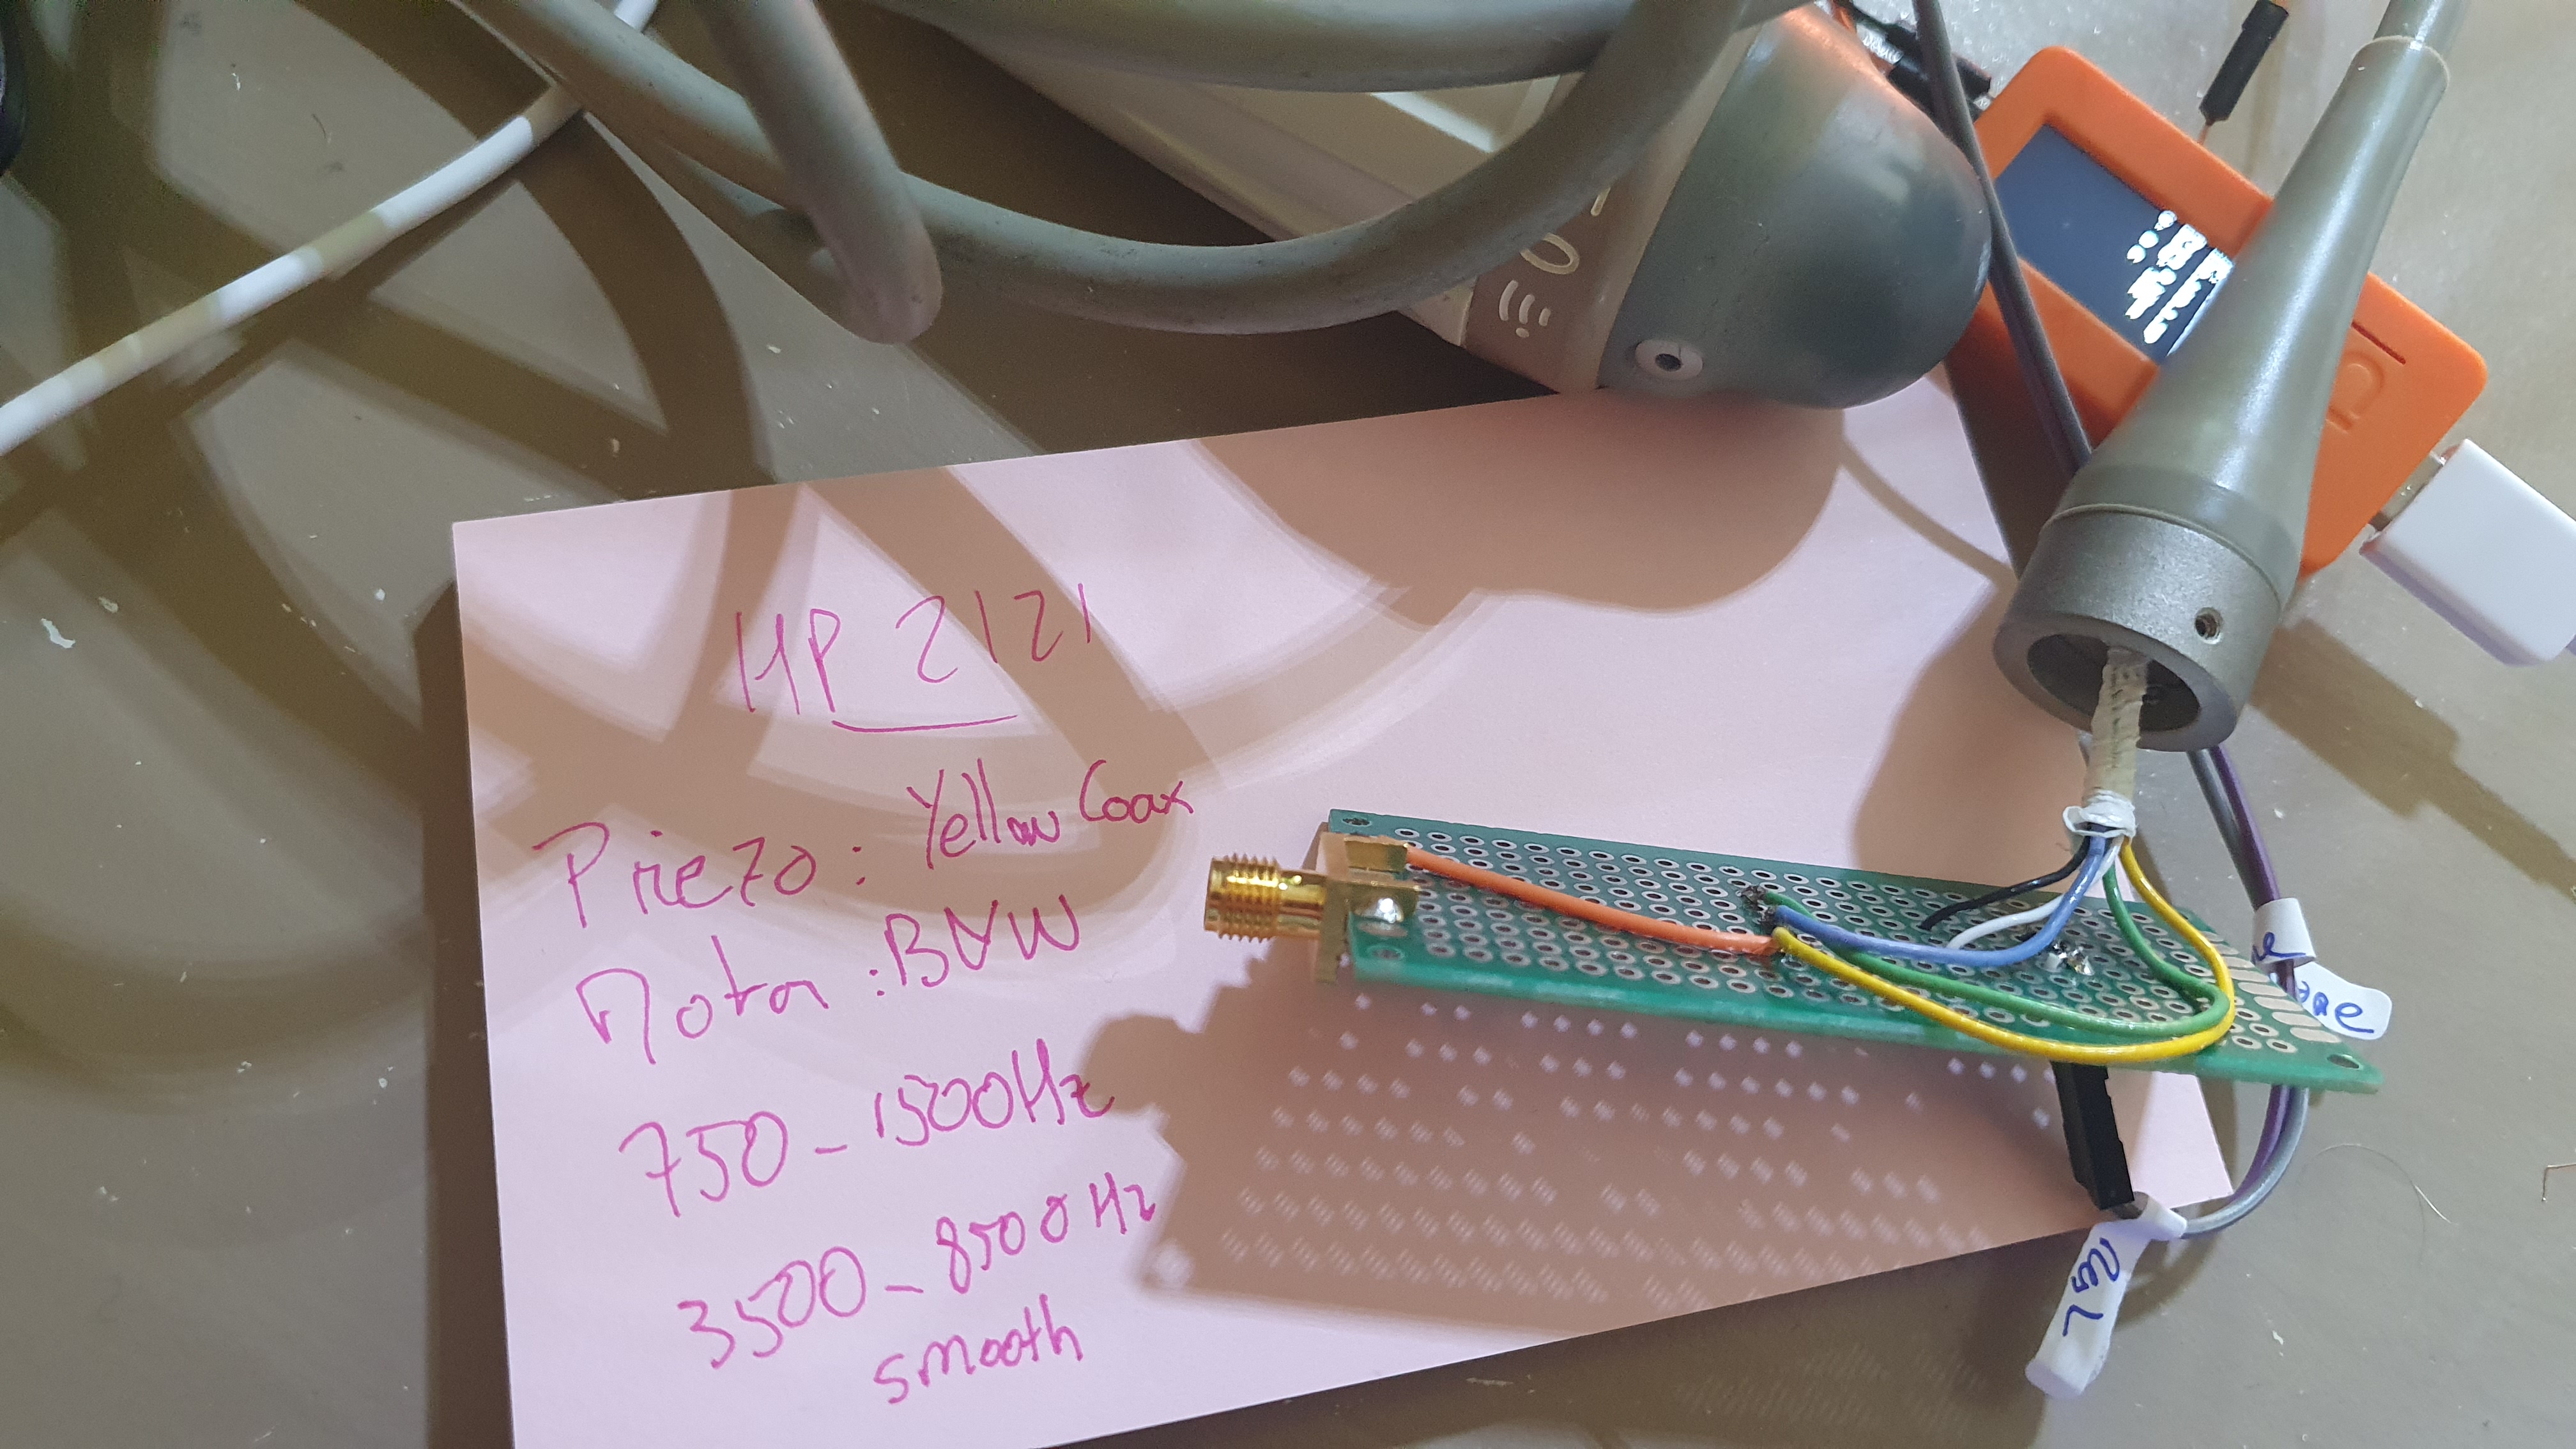 HP 2121
Piezo : Yellow Coax
Motor : BVW
750 - 1500Hz
3500 - 8500Hz
smooth